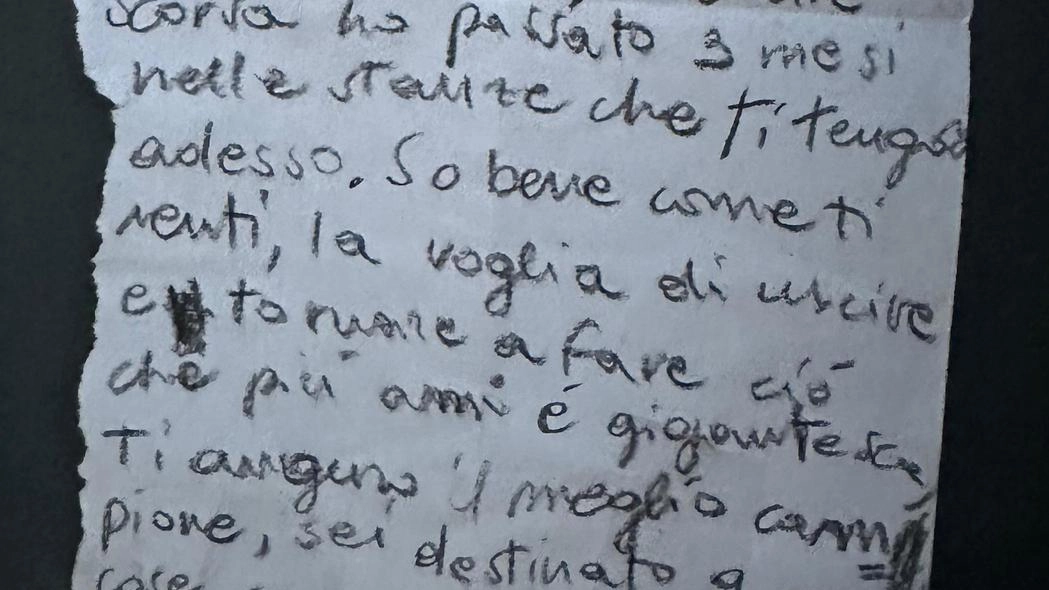 scorsa ho passato 3 mesi
nelle stanze che ti tengono
adesso. So bene come ti
senti, la voglia di uscire
e tornare a fare ciò
che più ami è gigantesca
Ti auguro il meglio cam=
pione, sei destinato a
cose